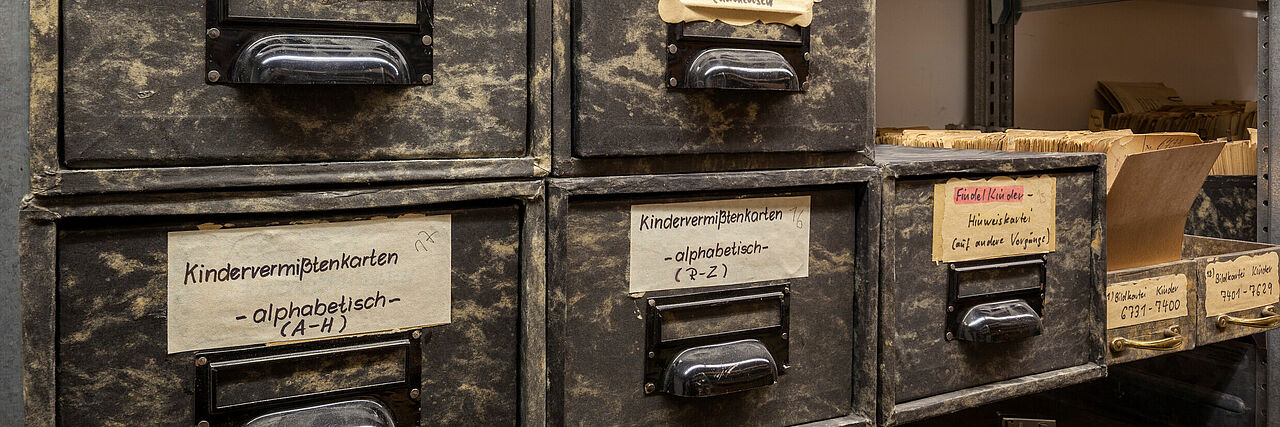 Kindervermißtenkarten
-alphabetisch-
(A-H)
17
Kindervermißtenkarten
-alphabetisch-
(R-Z)
16
Findelkinder-
Hinweiskartei
(auf andere Vorgänge)
Bildkartei Kinder
6731-7400
Bildkartei Kinder
7401-7629